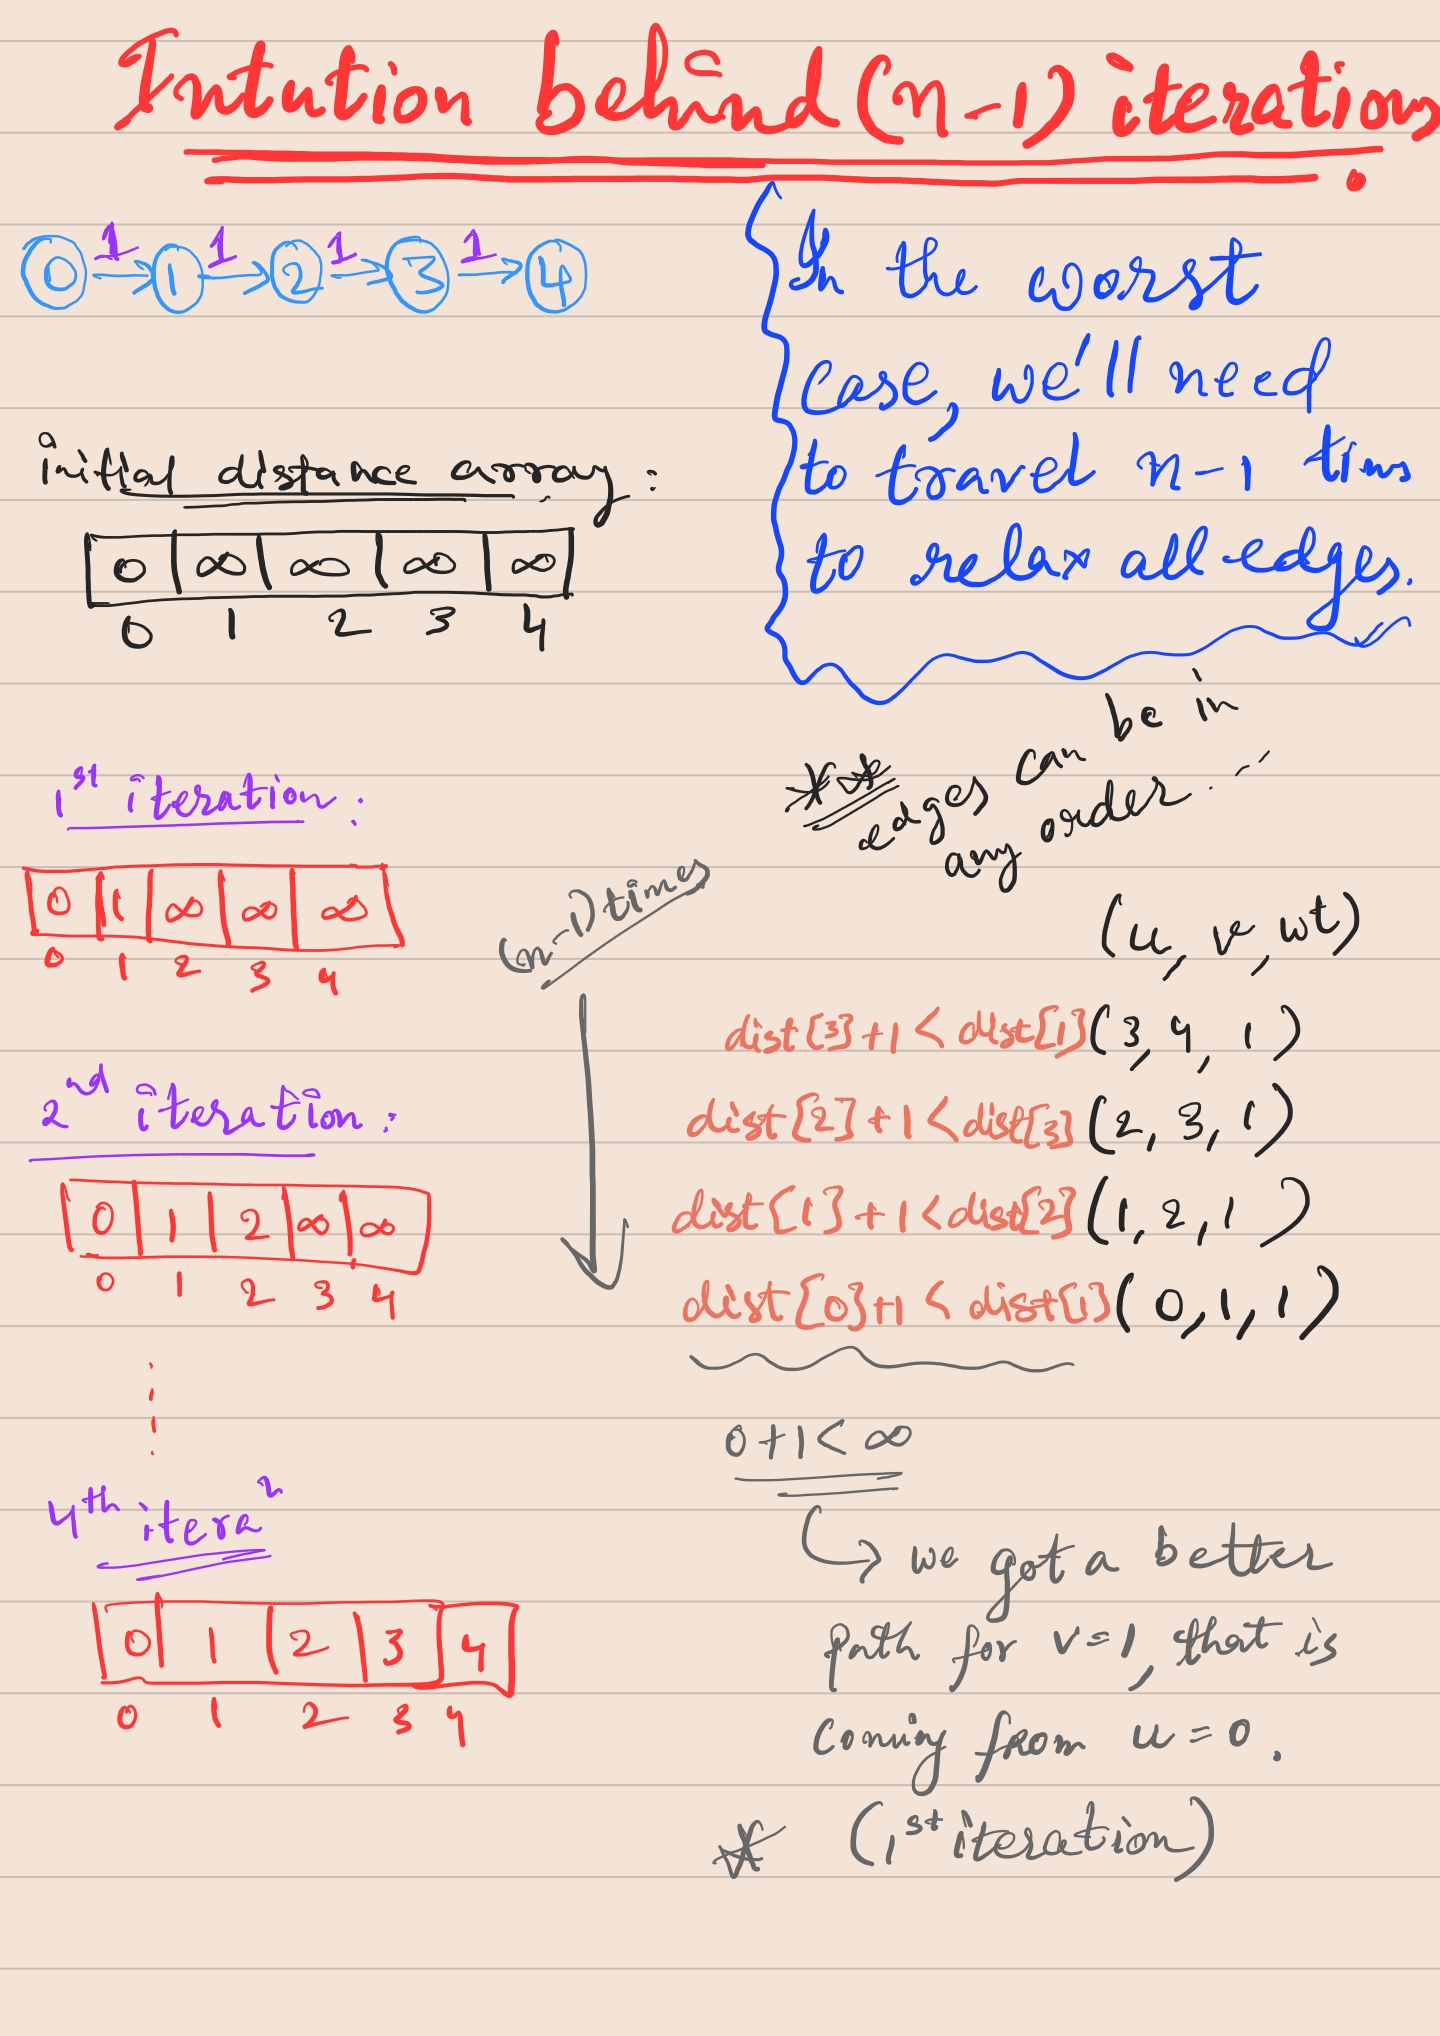 Intution behind (n-1) iterations.
0 1 1 1 2 1 3 1 4
In the worst
case, we'll need
to travel n-1 tims
to relax all edges.
initial distance array:
0 ∞ ∞ ∞ ∞
0 1 2 3 4
** edges can be in
any order...
1st iteration:
0 1 ∞ ∞ ∞
0 1 2 3 4
2nd iteration:
0 1 2 ∞ ∞
0 1 2 3 4
4th itera^n
0 1 2 3 4
0 1 2 3 4
(n-1) times
(u, v, wt)
dist[3]+1 < dist[1] (3, 4, 1)
dist[2]+1 < dist[3] (2, 3, 1)
dist[1]+1 < dist[2] (1, 2, 1)
dist[0]+1 < dist[1] (0, 1, 1)
0+1 < ∞
↳ we got a better
path for v=1, that is
coming from u=0.
* (1st iteration)